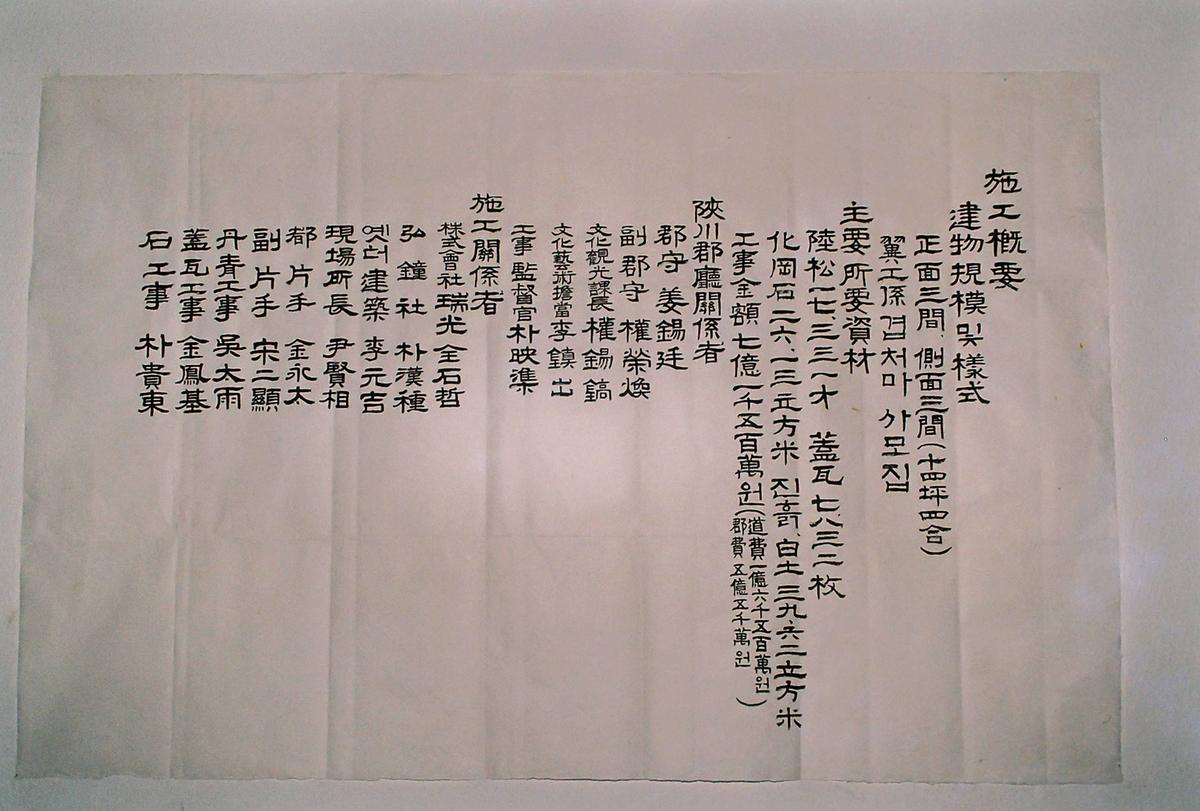 施工槪要
建物規模및樣式
正面三間、側面三間(十四坪四合)
翼工係겹처마 사모집
主要所要資材
陸松一七、三三一才 蓋瓦七、八三二枚
化岡石二六、一三立方米 진흙、白土三九、六二立方米
工事金額、七億一千五百萬원(道費一億六千五百萬원 郡費五億五千萬원)
陜川郡廳關係者
郡守 姜錫廷
副郡守 權榮煥
文化觀光課長 權錫鎬
文化藝術擔當 李鎭出
工事監督官 朴映準
施工關係者
株式會社瑞光 全石哲
弘鐘社 朴漢種
옛터建築 李元吉
現場所長 尹賢相
都片手 金永太
副片手 宋二顯
丹靑工事 吳太雨
蓋瓦工事 金鳳基
石工事 朴貴東